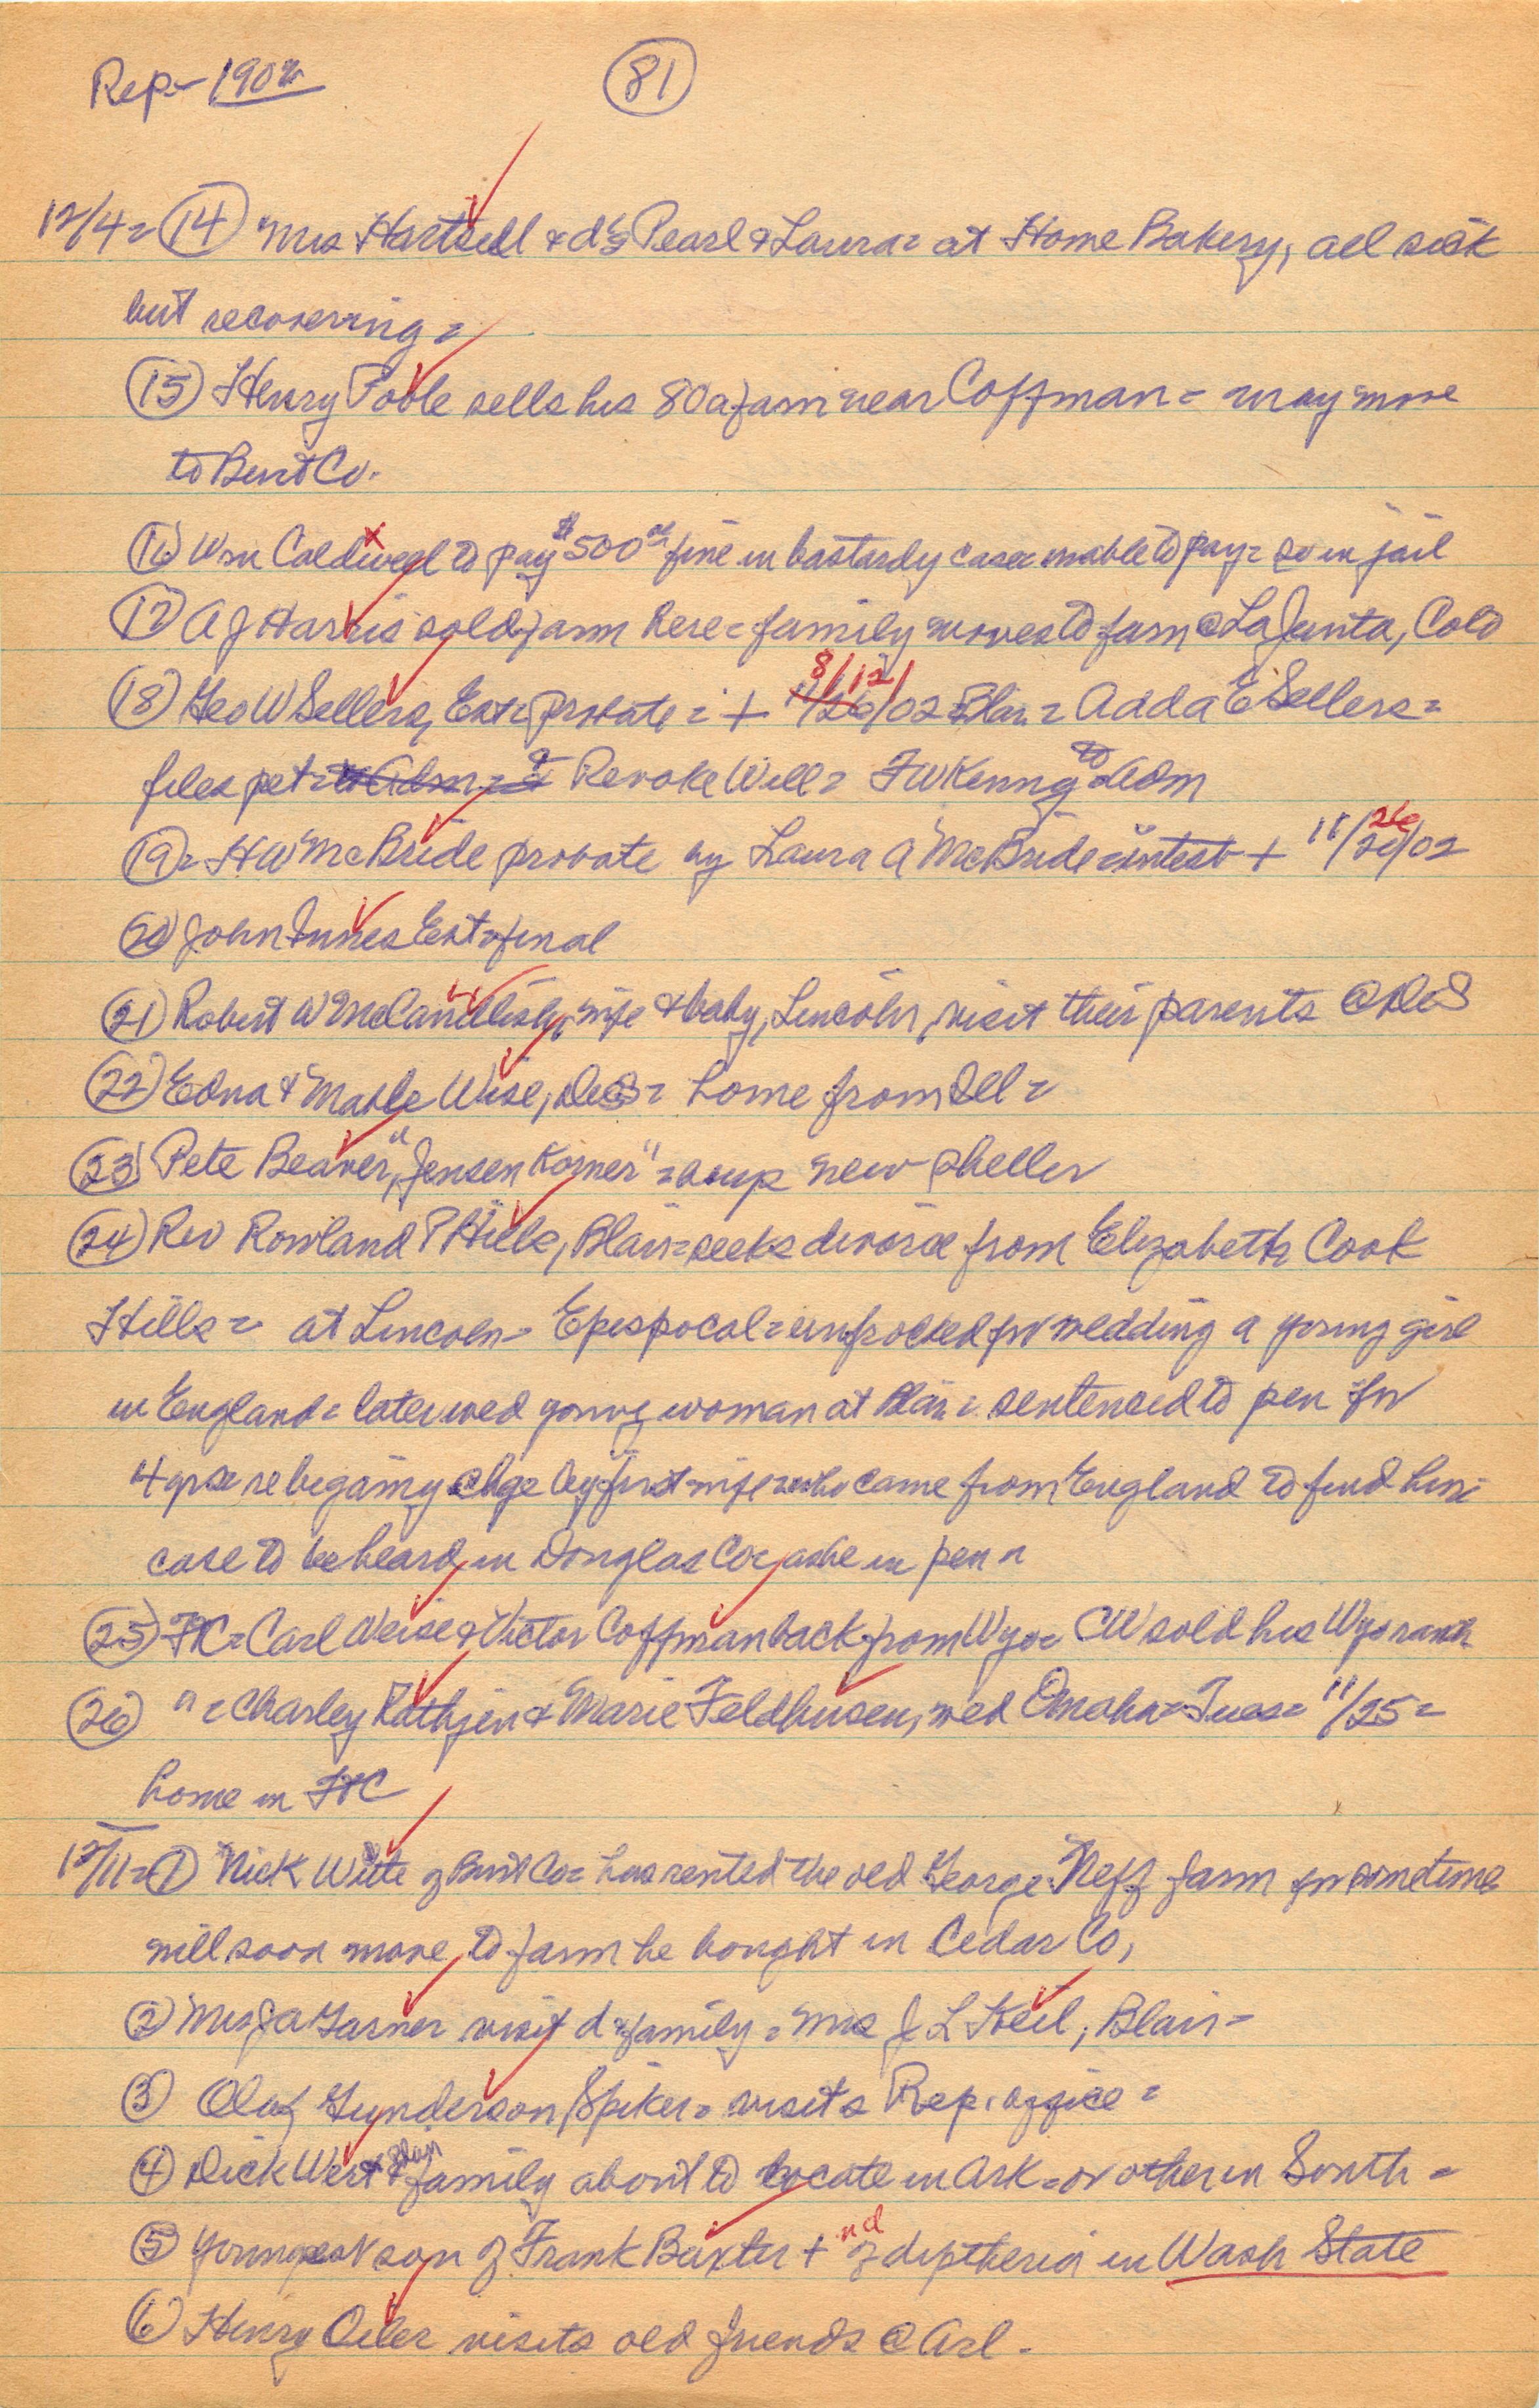 Rep- 1902
81
12/4= 14 Mrs Hartsell & ds Pearl & Laura= at Home Bakery, all sick
but recovering=
15 Henry Poble sells his 80a farm near Coffman= may move
to Burt Co.
16 Wm Caldwell to pay $500 fine in bastardy case= unable to pay= so in jail
17 A J Harris sold farm here= family moves to farm @ La Junta, Colo
18 Geo W Sellers, Est= probate= + 8/12/02 Blair= Adda E Sellers=
files pet= Revoke Will= FW Kenny to Adm
19= HW McBride probate by Laura A McBride= intest + 11/26/02
20 John Innes Est= final
21 Robert W McCandlish, wife & baby, Lincoln, visit their parents @ DeS
22 Edna & Mable Wise, DeS= home from Ill=
23 Pete Beaver, "Jensen Korner"= buys new sheller
24 Rev Rowland P Hills, Blair= seeks divorce from Elizabeth Cook
Hills= at Lincoln= Epispocal= unfrocked for wedding a young girl
in England= later wed young woman at Blair= sentenced to pen for
4 yrs= re bigamy chge by first wife= who came from England to find him
case to be heard in Douglas Co= as he in pen=
25 FtC= Carl Weise & Victor Coffman back from Wyo= CW sold his Wyo ranch
26 "= Charley Rathjen & Marie Feldhusen, wed Omaha= Tues= 11/25=
home in FtC
12/11= 1 Nick Witte of Burt Co= has rented the old George Neff farm for sometime
will soon move to farm he bought in Cedar Co,
2 Mrs Ja Garner visit d & family= Mrs J L Keil, Blair-
3 Oluf Gunderson, Spiker= visits Rep. office=
4 Dick Wert & family Blair about to locate in Ark= or other in South=
5 Youngest son of Frank Baxter + nd of diptheria in Wash State
6 Henry Oiler visits old friends @ Arl-